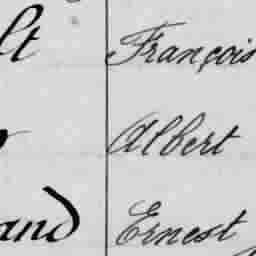 lt François
Albert
and Ernest